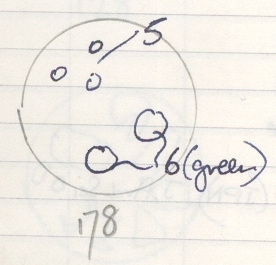 5
6(green)
178